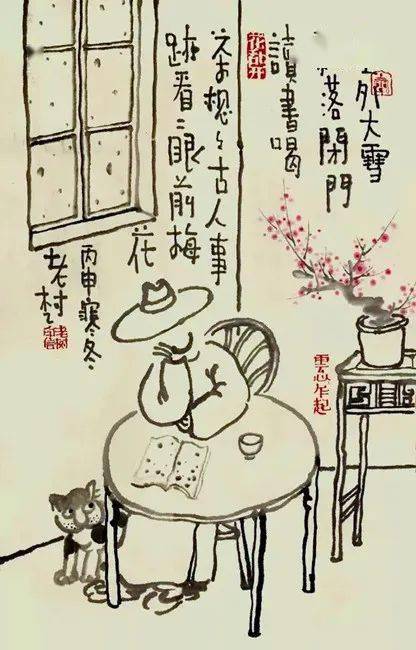 外大雪
落閉門
讀書喝
茶想々古人事
跡看々眼前梅
花
丙申寒冬
老村